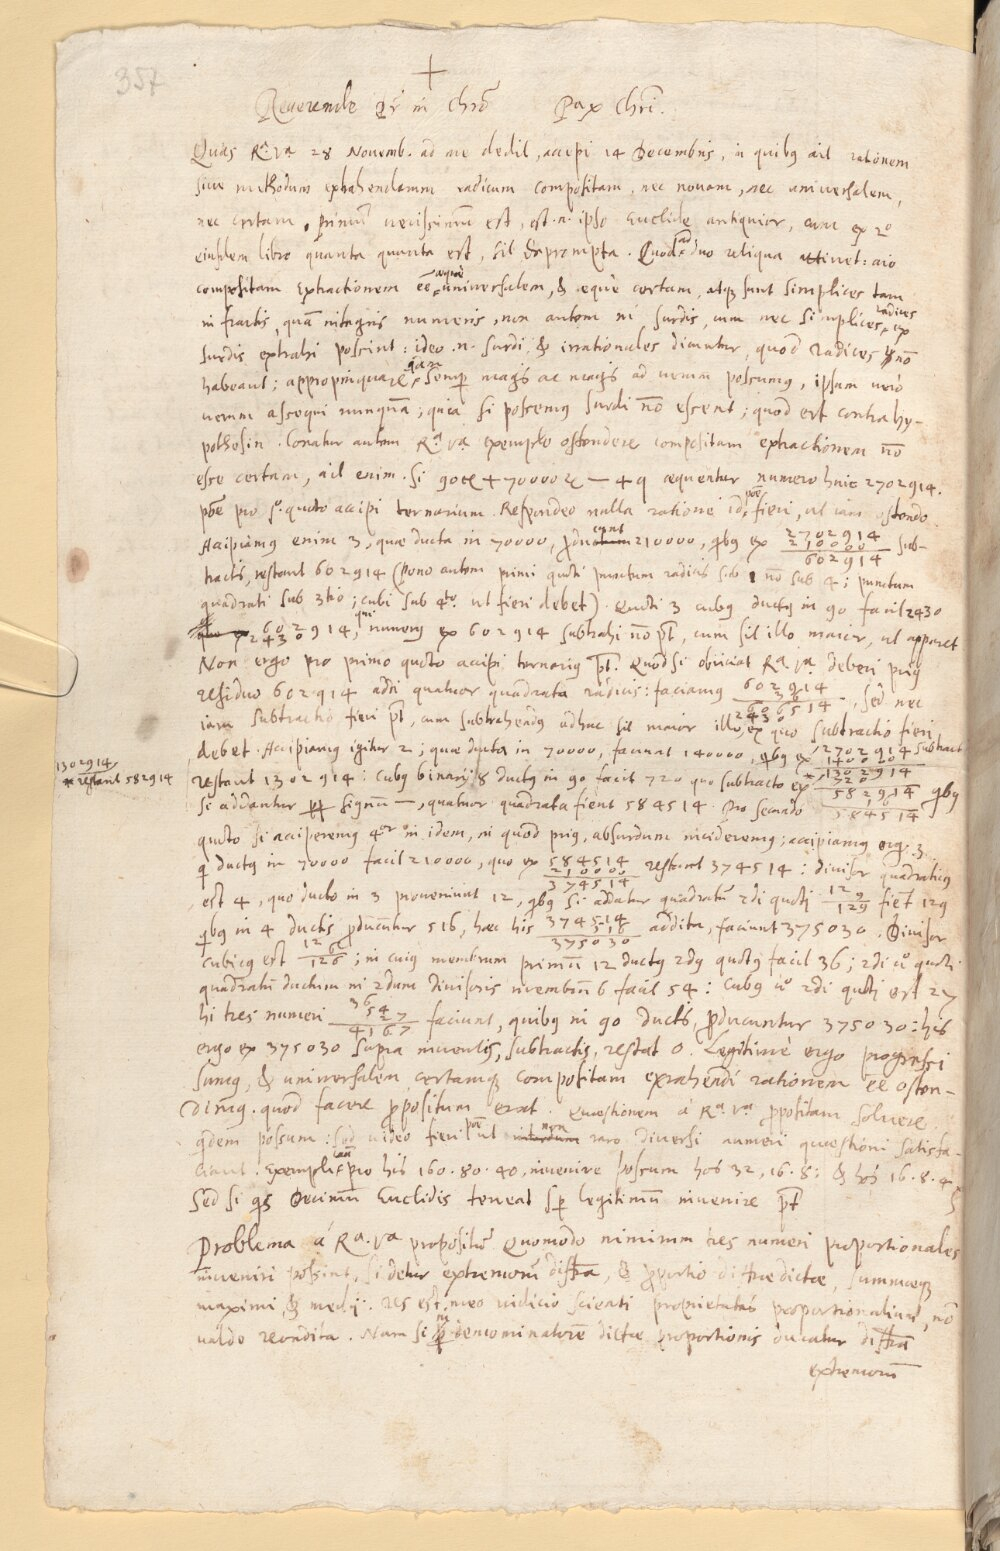 357
Reverende Pr in Chrõ Pax Chri.
Quas Rª Vª 28 Novemb. ad me dedit, accepi 14 Decembris, in quibq ait rationem
sive methodum extrahendarum radicum compositam, nec novam, nec universalem,
nec certam. Primũ verissimum est, est .n. ipso Euclide antiquior, cum ex 2º
eiusdem libro quanta quanta est, sit deprompta. Quod ad duo reliqua attinet: aio
compositam extractionem eẽ aequè universalem, & aequè certam, atq sunt simplices tam
in fractis, quã integris numeris, non autem in surdis, cum nec simplices radices ex
surdis extrahi possint: ideo .n. surdi, & irrationales dicuntur, quod radices nõ
habeant; appropinquare semp magis ac magis ad verum possumq, ipsum verò
verum assequi nunquã; quia si possemq surdi nõ essent; quod est contra hy-
pothesin. Conatur autem Rª Vª exemplo ostendere compositam extractionem nõ
esse certam, ait enim. Si 90 + 70000 — 4q aequentur numero huic 2702914.
põe pro pº. quoto accipi ternarium. Respondeo nulla ratione id põe fieri, ut iam ostendo
Accipiamq enim 3, quae ducta in 70000, producunt 210000, qbq ex 2702914 sub-
210000
602914
tractis, restant 602914 (pono autem primi quoti punctum radicis sub 1 nõ sub 4; punctum
quadrati sub 3tio; cubi sub 4to. ut fieri debet). Quoti 3 cubq ductq in 90 facit 2430
602914, qui numerq ex 602914 subtrahi nõ pt, cum sit illo maior, ut apparet
2430
Non ergo pro primo quoto accipi ternariq pt. Quod si obiiciat Rª Vª deberi priq
residuo 602914 addi quatuor quadrata radicis: faciamq 602914, sed nec
36
606514
2430
iam subtractio fieri pt, cum subtrahendq adhuc sit maior illo, ex quo subtractio fieri
debet. Accipiamq igitur 2; quae ducta in 70000, faciunt 140000, qbq ex 2702914 subtract
140000
1302914
1302914
* restant 582914
restant 1302914: cubq binarij 8 ductq in 90 facit 720 quo subtracto ex * 1302914
720
582914 qbq
16
584514
si addantur pp signũ —, quatuor quadrata fient 584514. Pro secundo
quoto si acciperemq 4or in idem, in quod priq, absurdum incideremq; accipiamq ergo 3
q ductq in 70000 facit 210000, quo ex 584514 restant 374514: divisor quadraticq
210000
374514
est 4, quo ducto in 3 proveniunt 12, qbq si addatur quadratũ 2di quoti 12 9 fiẽt 129
129
qbq in 4 ductis producuntur 516, haec his 374514 addita, faciunt 375030. Divisor
516
375030
cubicq est 12 6; in cuiq membrum primũ 12 ductq 2dq quotq facit 36; 2di vº quoti
126
quadratũ ductum in 2dum divisoris membrũ 6 facit 54: Cubq vº 2di quoti est 27
hi tres numeri 36 faciunt, quibq in 90 ductis, producuntur 375030: his
54
27
4167
ergo ex 375030 supra inventis, subtractis, restat 0. Legitimè ergo progressi
sumq, & universalem, certamq compositam extrahendi rationem eẽ osten-
dimq. quod facere propositum erat. Quaestionem à Rª Vª propositam solvere
qdem possum: sed video fieri põe ut non raro diversi numeri quaestioni satisfa-
ciant. Exempli cau pro his 160. 80. 40, invenire possum hos 32, 16. 8: & hos 16. 8. 4
Sed si qs Decimum Euclidis teneat sp legitimũ invenire pt
Problema à Rª. Vª propositũ Quomodo nimirum tres numeri proportionales
inveniri possint, si detur extremorũ diffra, & proportio diffrae dictae, summaeq
maximi, & medij. res est, meo iudicio scienti proprietates proportionalium, nõ
valde recondita. Nam si in denominatorẽ dictae proportionis ducatur diffra
extremorũ